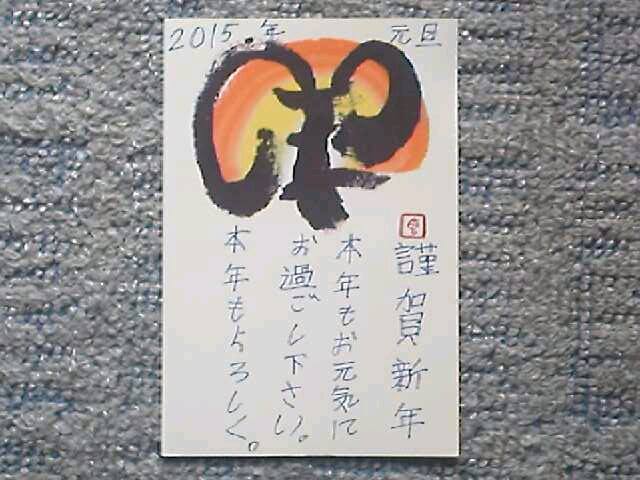 2015年 元旦
謹賀新年
本年もお元気に
お過ごし下さい。
本年もよろしく。